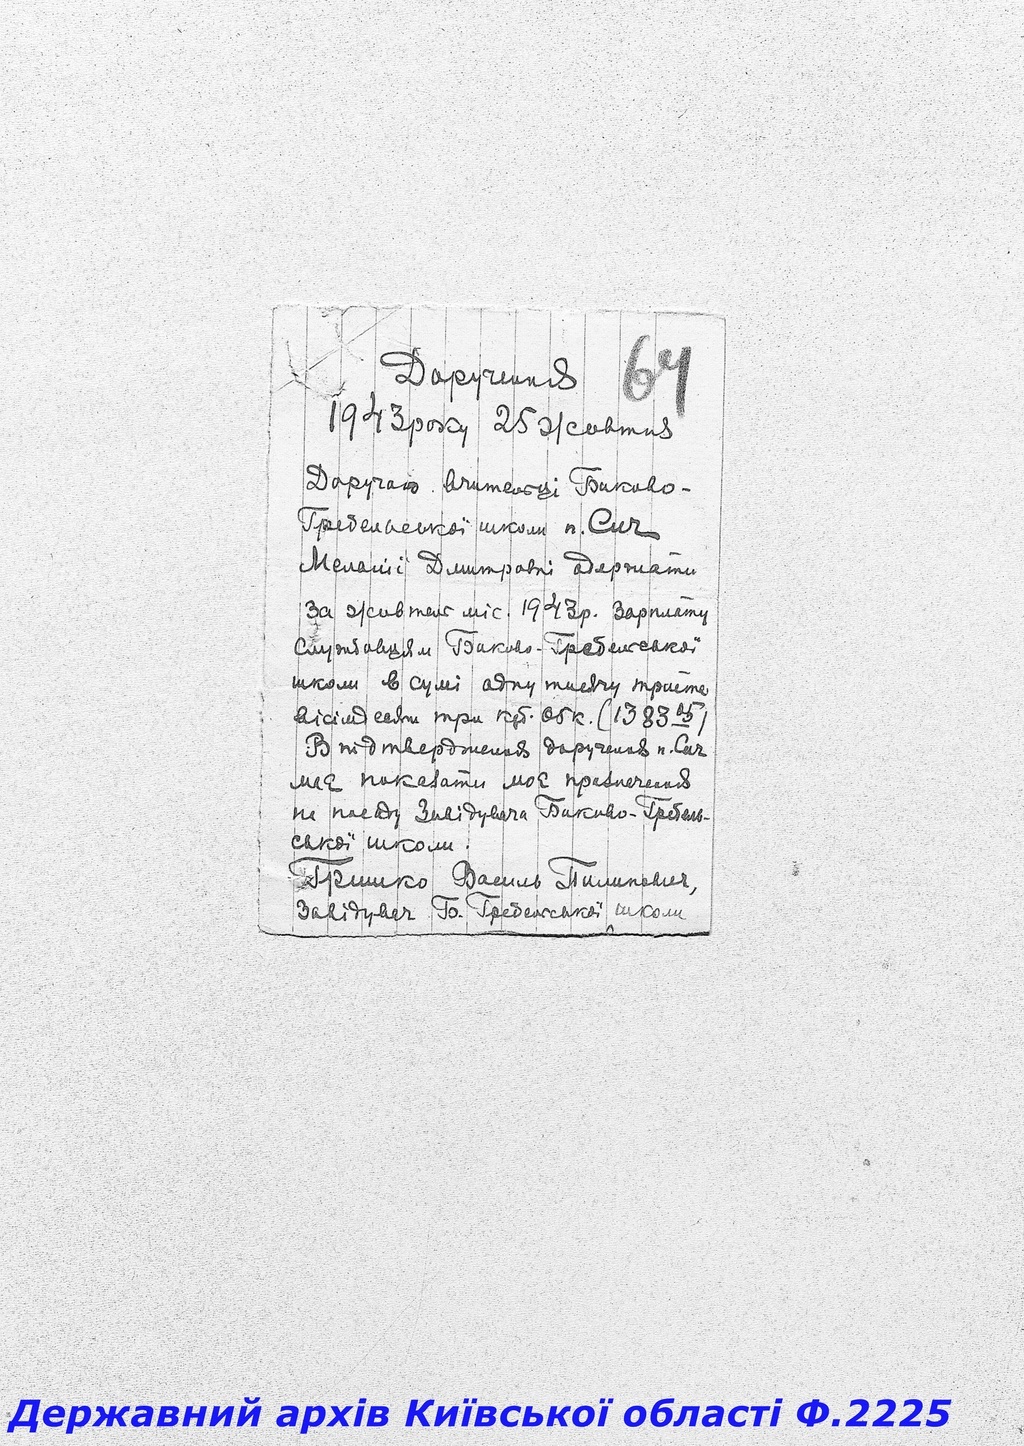 Доручення 64
1943 року 25 жовтня
Доручаю вчительці Биково-
Гребельської школи п. Сич
Меланії Дмитровні одержати
за жовтень міс. 1943 р. зарплату
службовцям Биково-Гребельської
школи в сумі одну тисячу триста
вісімдесят три крб. 05 к. (1383 05)
В підтвердження доручення п. Сич
має показати моє призначення
на посаду Завідувача Биково-Гребель-
ської школи.
Гришко Василь Пилипович,
Завідувач Б. Гребельської школи
Державний архів Київської області Ф.2225